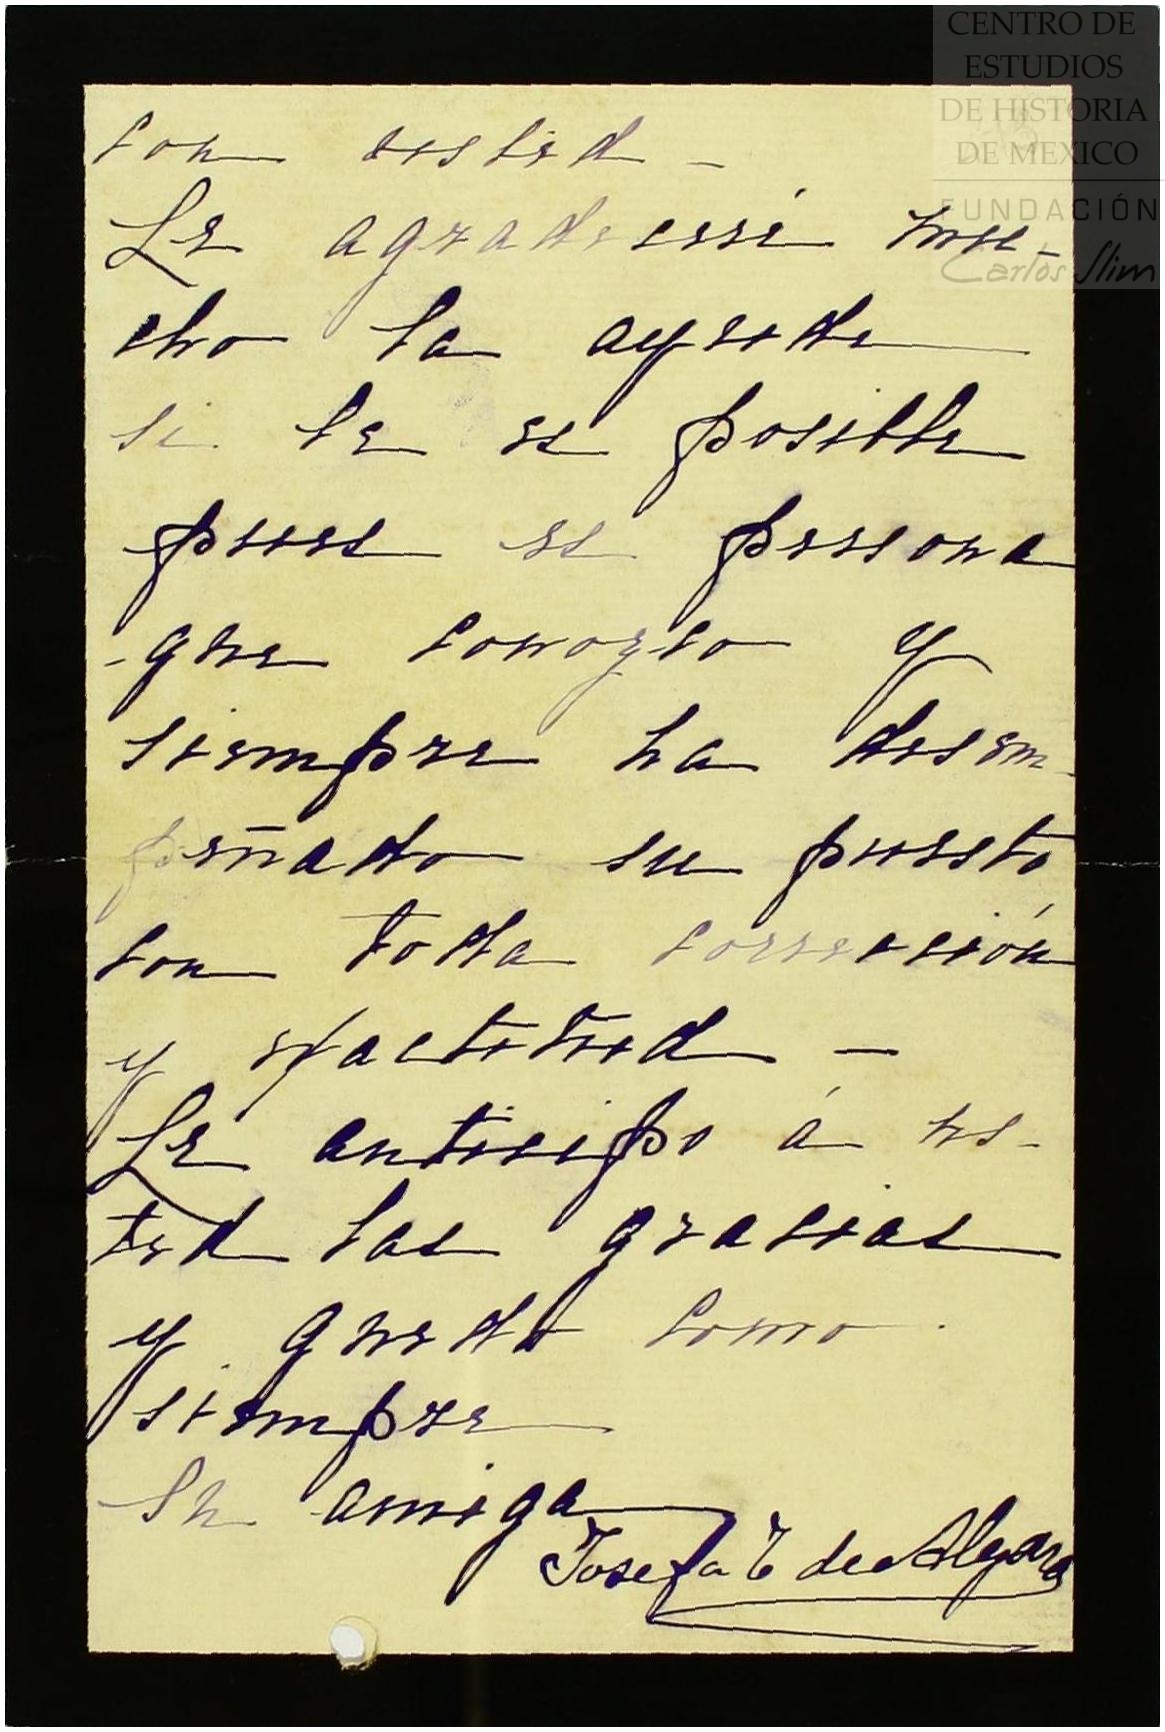 CENTRO DE
ESTUDIOS
DE HISTORIA
DE MEXICO
FUNDACIÓN
Carlos Slim
con usted –
Le agradeceré mu-
cho la ayude
si le es posible
pues es persona
que conozco y
siempre ha desem-
peñado su puesto
con toda corrección
y exactitud –
Le anticipo á us-
ted las gracias
y quedo como
siempre
Su amiga
Josefa T de Algara